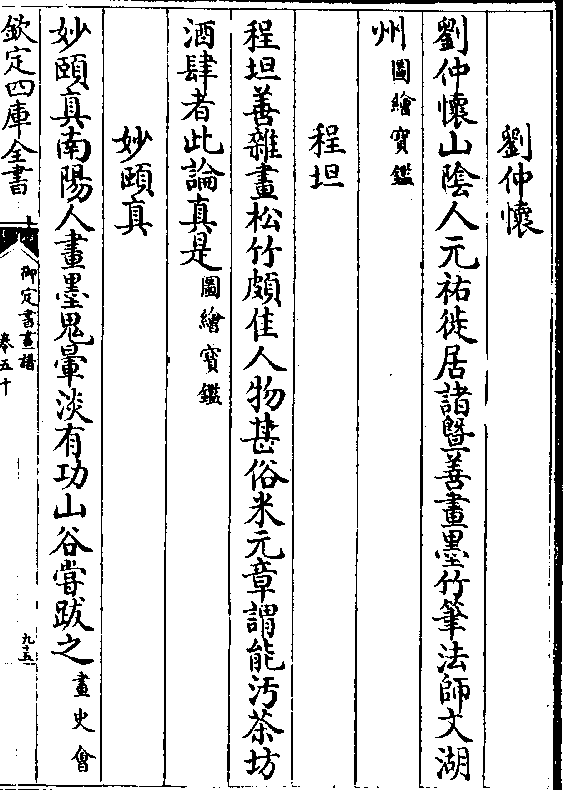 劉仲懷
劉仲懷山陰人元祐徙居諸暨善畫墨竹筆法師文湖
州圖繪寶鑑
程坦
程坦善雜畫松竹頗佳人物甚俗米元章謂能汚茶坊
酒肆者此論真是圖繪寶鑑
妙頤真
妙頤真南陽人畫墨鬼暈淡有功山谷嘗跋之畫史會
欽定四庫全書
御定書畫譜
卷五十
九五